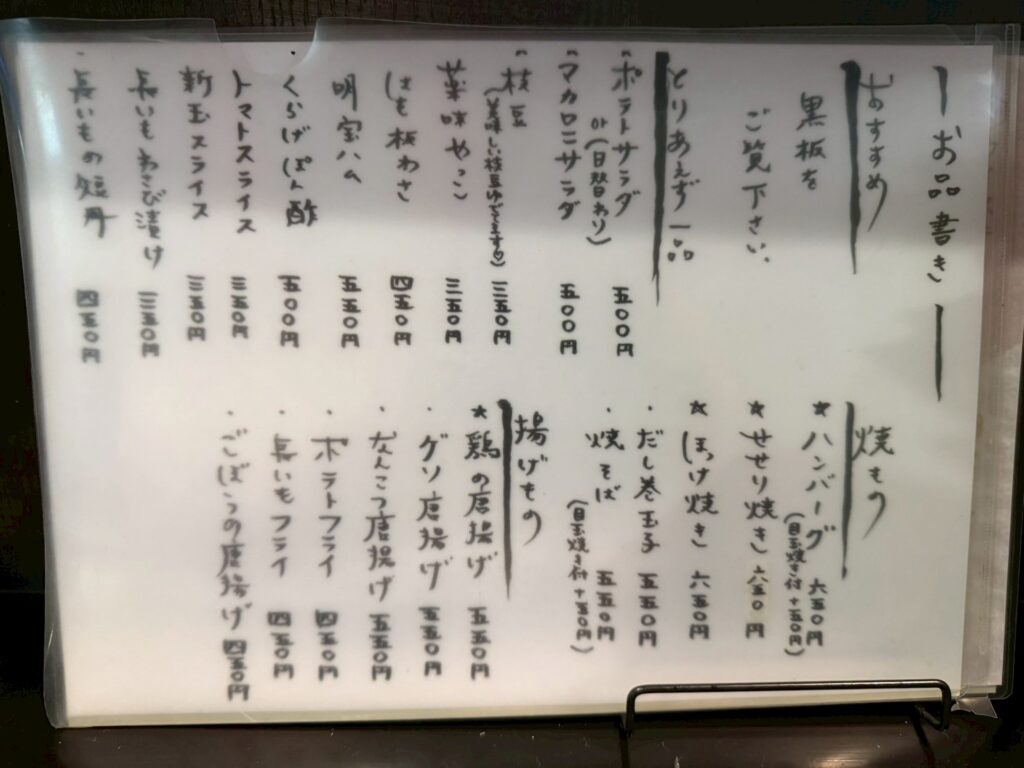 ーお品書きー
おすすめ
黒板を
ご覧下さい
とりあえず一品
・ポテトサラダ 五〇〇円
(日替わり)
・マカロニサラダ 五〇〇円
・枝豆 三五〇円
(美味しい枝豆ゆでてます♡)
薬味やっこ 三五〇円
はも板わさ 四五〇円
明宝ハム 五五〇円
・くらげぽん酢 五〇〇円
トマトスライス 三五〇円
新玉スライス 三五〇円
長いもわさび漬け 三五〇円
・長いもの短冊 四五〇円
焼もの
★ハンバーグ 六五〇円
(目玉焼き付+五〇円)
★せせり焼き 六五〇円
★ほっけ焼き 六五〇円
・だし巻玉子 五五〇円
・焼そば 五五〇円
(目玉焼き付+五〇円)
揚げもの
★鶏の唐揚げ 五五〇円
・ゲソ唐揚げ 五五〇円
・なんこつ唐揚げ 五五〇円
・ポテトフライ 四五〇円
・長いもフライ 四五〇円
・ごぼうの唐揚げ 四五〇円